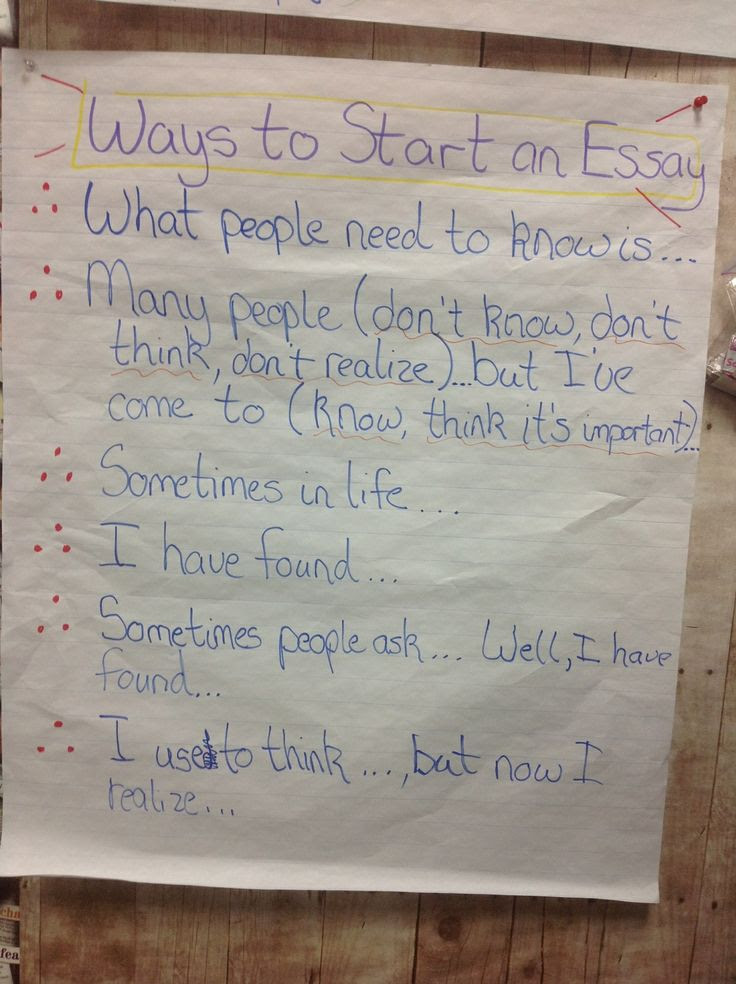 Ways to Start an Essay
What people need to know is...
Many people (don't know, don't
think, don't realize)...but I've
come to (know, think it's important)...
Sometimes in life....
I have found...
Sometimes people ask... Well, I have
found...
I use to think ...,but now I
realize...
cha
fea